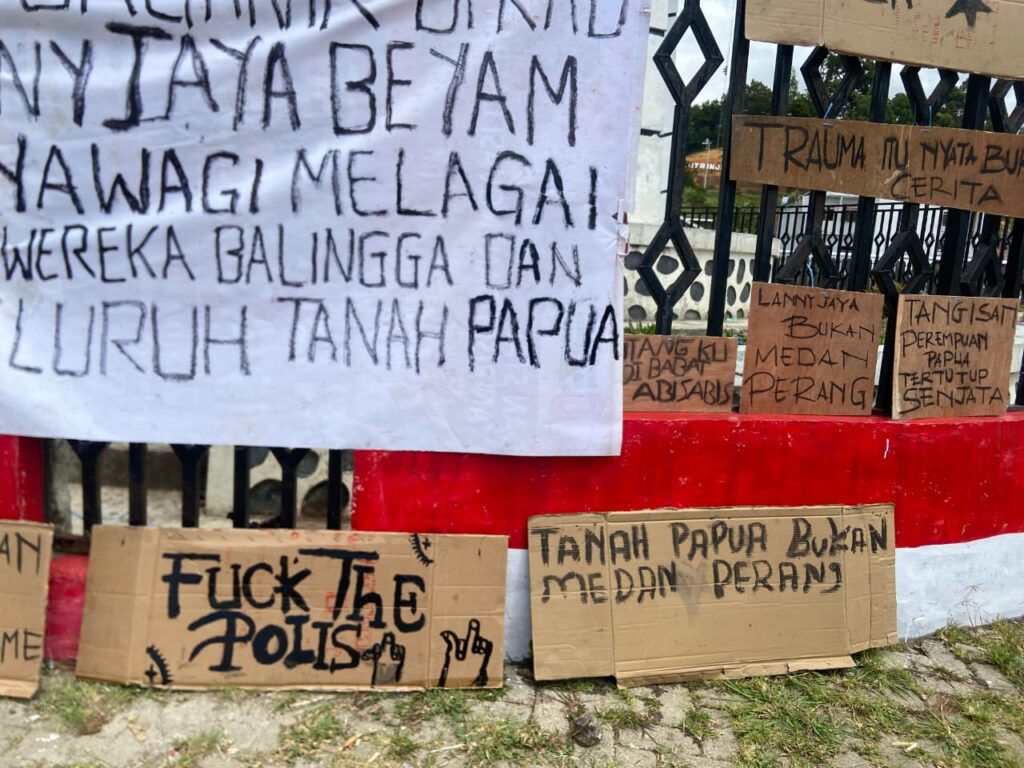 NYJAYA BEYAM
YAWAGI MELAGAI
WEREKA BALINGGA DAN
LURUH TANAH PAPUA
TRAUMA ITU NYATA BUK
CERITA
TANGKU
DI BABAT
ABISABIS
LANNYJAYA
BUKAN
MEDAN
PERANG
TANGISAN
PEREMPUAN
PAPUA
TERTUTUP
SENJATA
AN
ME
FUCK THE
POLIS
TANAH PAPUA BUKAN
MEDAN PERANG